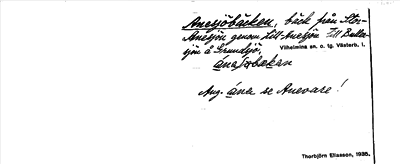 Anesjöbäcken, bäck från Stor-
Anesjön genom Lill-Anesjön till Bulla-
sjön å Grundsjö, Vilhelmina sn. o. tg. Västerb. l.
Ang. ána se Anevare!
Thorbjörn Eliasson, 1935.